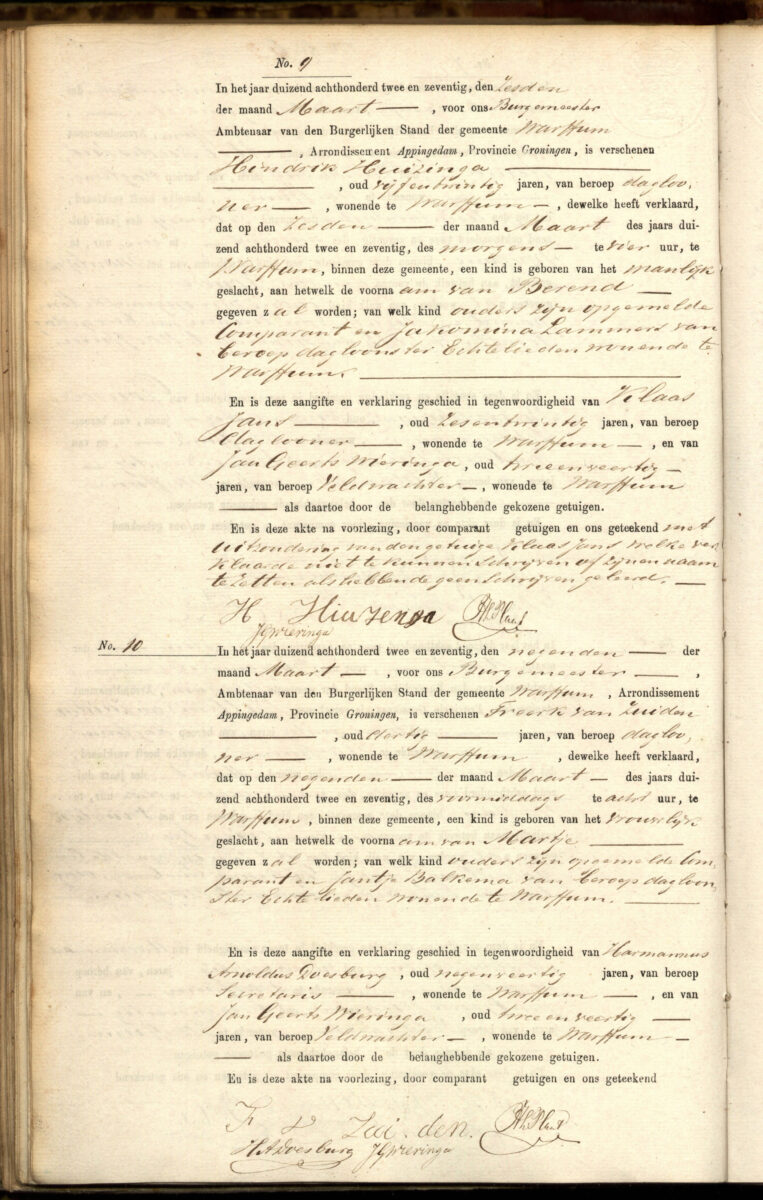 No. 9
In het jaar duizend achthonderd twee en zeventig, den Zesden
der maand Maart, voor ons Burgemeester
Ambtenaar van den Burgerlijken Stand der gemeente Warffum
, Arrondissement Appingedam, Provincie Groningen, is verschenen
Hindrik Huizinga
, oud vijfentwintig jaren, van beroep dagloo,
ner, wonende te Warffum, dewelke heeft verklaard,
dat op den Zesden der maand Maart des jaars dui-
zend achthonderd twee en zeventig, des morgens te vier uur, te
Warffum, binnen deze gemeente, een kind is geboren van het manlijk
geslacht, aan hetwelk de voorna am van Berend
gegeven zal worden; van welk kind ouders zijn opgemelde
Comparant en Jakomina Lammers van
beroep dagloonster Echtelieden wonende te
Warffum.
En is deze aangifte en verklaring geschied in tegenwoordigheid van Klaas
Jans, oud Zesentwintig jaren, van beroep
daglooner, wonende te Warffum, en van
Jan Geerts Wieringa, oud tweeenveertig
jaren, van beroep Veldwachter, wonende te Warffum
als daartoe door de belanghebbende gekozene getuigen.
En is deze akte na voorlezing, door comparant getuigen en ons geteekend met
uitzondering van den getuige Klaas Jans welke ver
klaarde niet te kunnen schrijven of zijnen naam
te zetten als hebbende geen schrijven geleerd.
H Hiuzenga
JGWieringa
No. 10
In het jaar duizend achthonderd twee en zeventig, den negenden der
maand Maart, voor ons Burgemeester,
Ambtenaar van den Burgerlijken Stand der gemeente Warffum, Arrondissement
Appingedam, Provincie Groningen, is verschenen Freerk van Zuiden
, oud dertig jaren, van beroep dagloo,
ner, wonende te Warffum, dewelke heeft verklaard,
dat op den negenden der maand Maart des jaars dui-
zend achthonderd twee en zeventig, des voormiddags te acht uur, te
Warffum, binnen deze gemeente, een kind is geboren van het vrouwelijk
geslacht, aan hetwelk de voorna am van Martje
gegeven zal worden; van welk kind ouders zijn opgemelde Com-
parant en Jantje Balkema van beroep dagloon
ster Echtelieden wonende te Warffum.
En is deze aangifte en verklaring geschied in tegenwoordigheid van Harmannus
Arnoldus Doesburg, oud negenveertig jaren, van beroep
Secretaris, wonende te Warffum, en van
Jan Geerts Wieringa, oud tweeenveertig
jaren, van beroep Veldwachter, wonende te Warffum
als daartoe door de belanghebbende gekozene getuigen.
En is deze akte na voorlezing, door comparant getuigen en ons geteekend
F v Zui.den.
HADoesburg JGWieringa